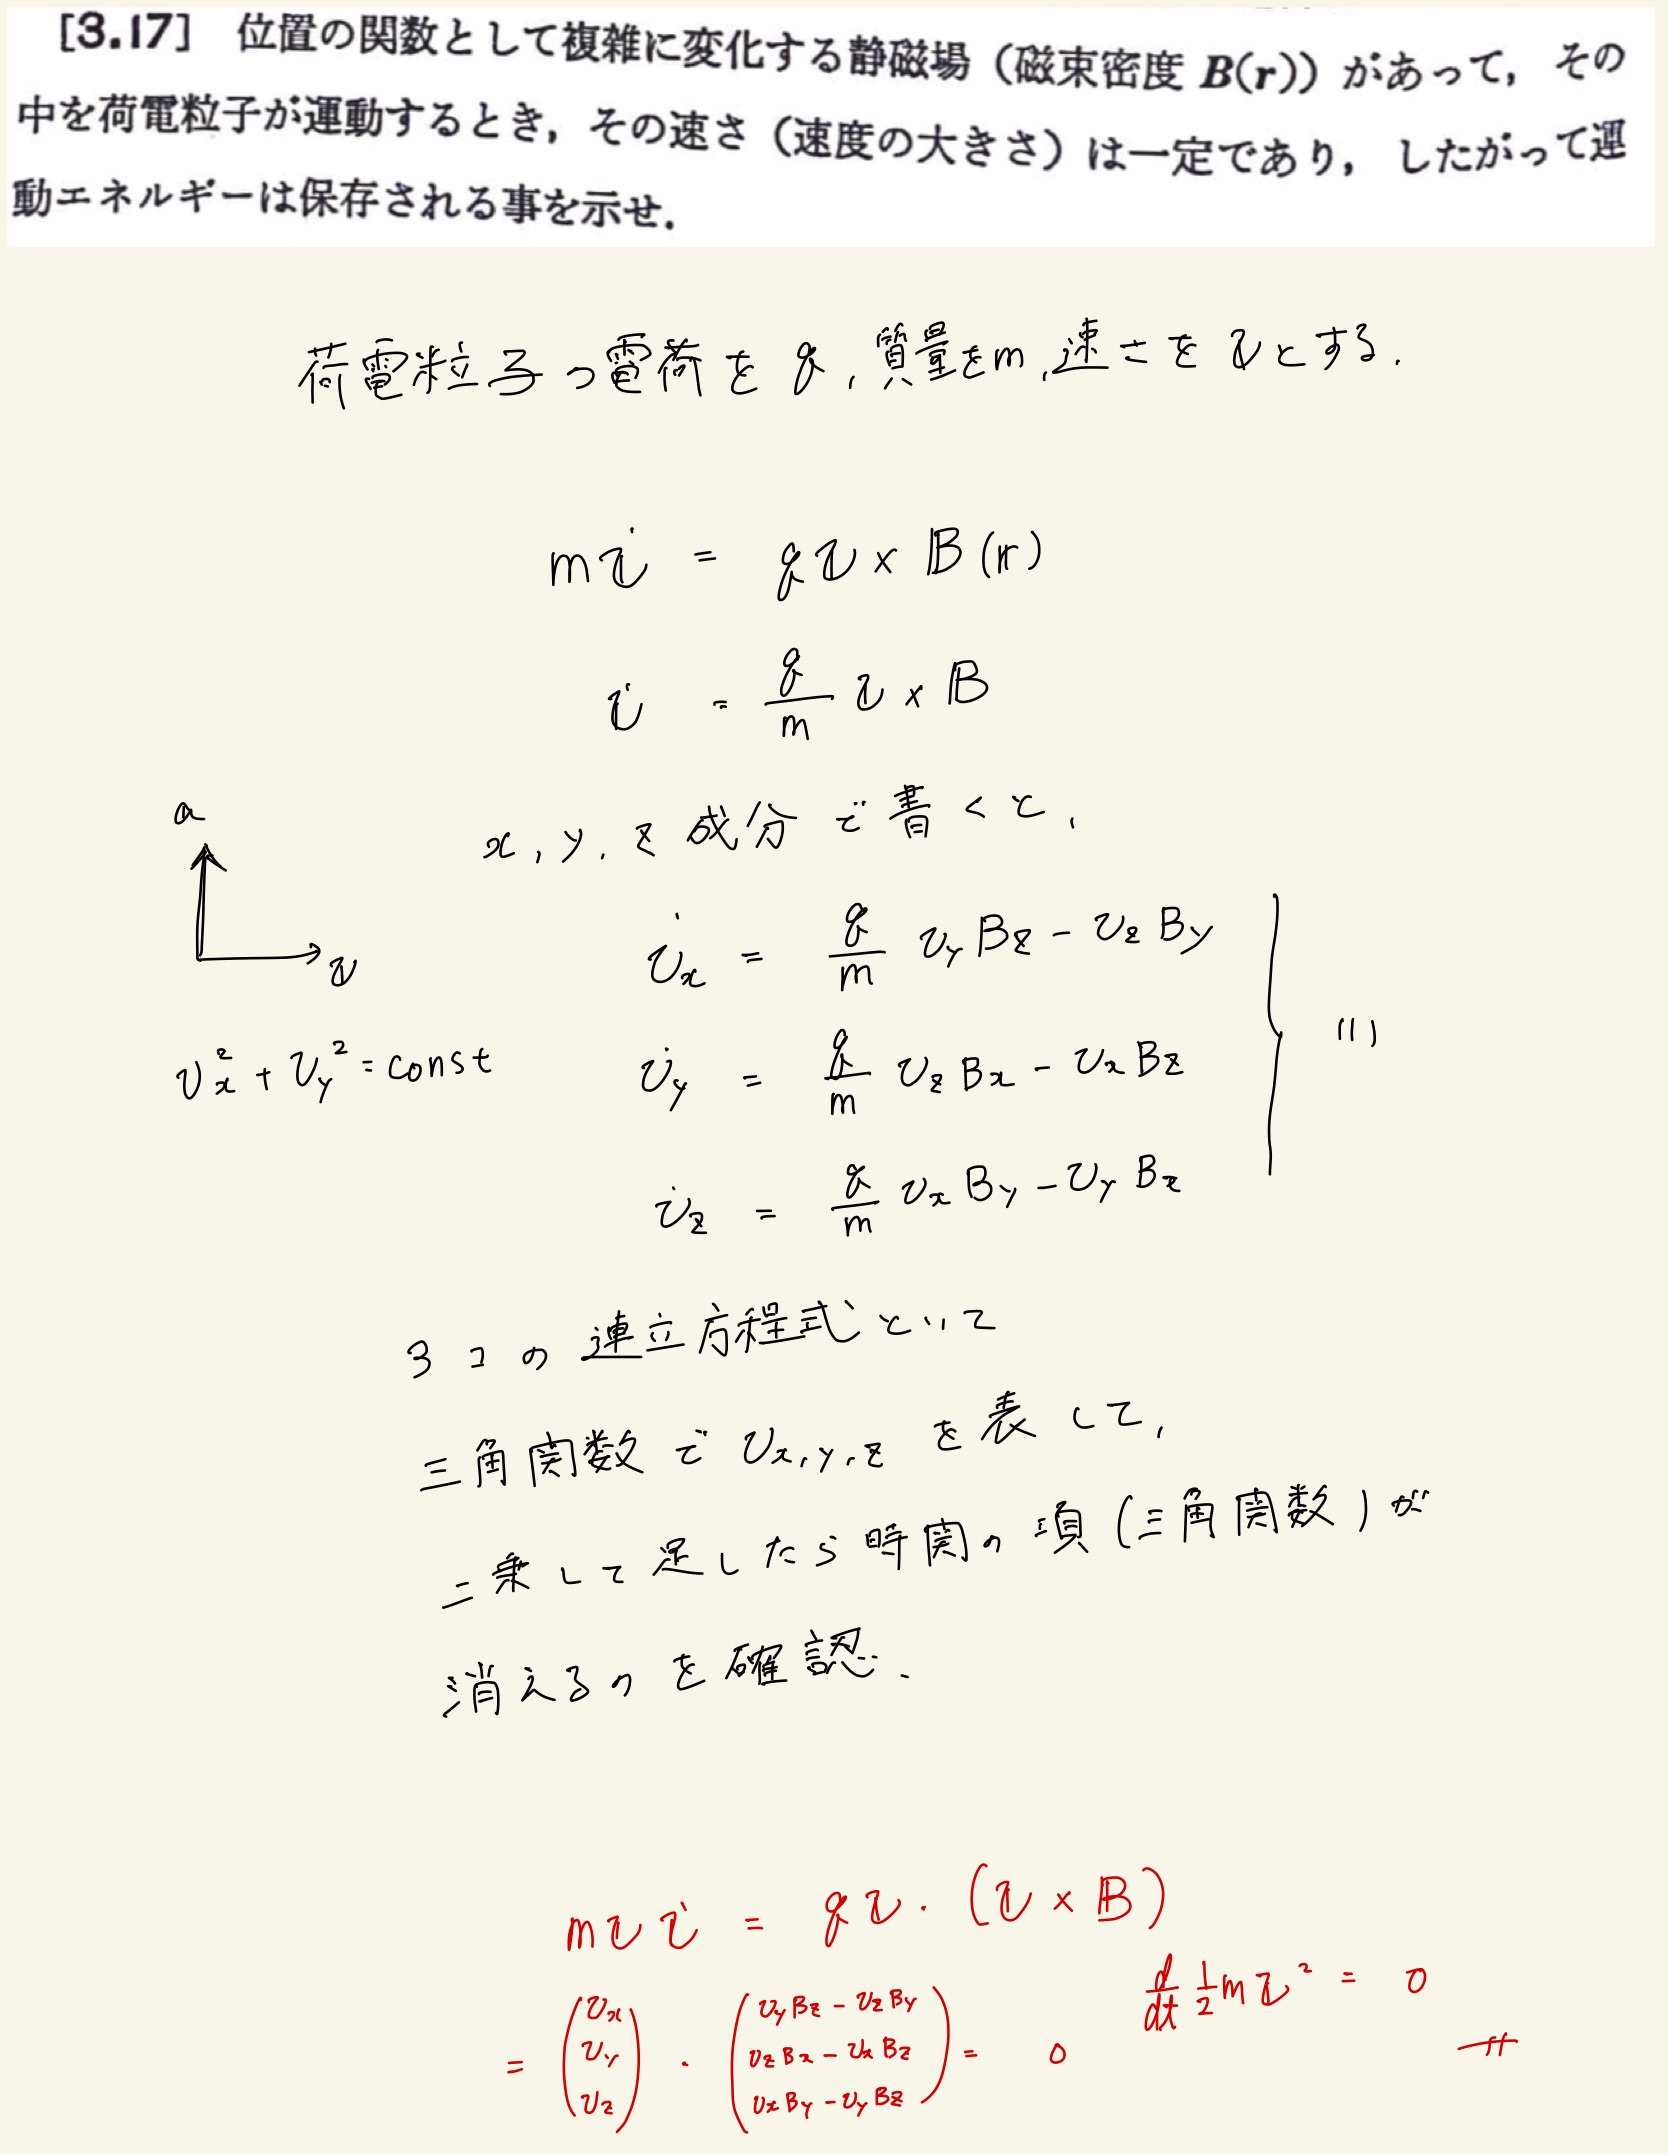 [3.17] 位置の関数として複雑に変化する静磁場（磁束密度 B(r)）があって，その
中を荷電粒子が運動するとき，その速さ（速度の大きさ）は一定であり，したがって運
動エネルギーは保存される事を示せ．
荷電粒子の電荷を q, 質量をm, 速さを v とする.
m v̇ = q v × B (r)
v̇ = q/m v × B
x, y, z 成分で書くと,
a
v
v̇x = q/m vy Bz - vz By
v̇y = q/m vz Bx - vx Bz
(1)
vx² + vy² = const
v̇z = q/m vx By - vy Bz
3コの連立方程式といて
三角関数で vx,y,z を表して,
二乗して足したら時間の項 (三角関数) が
消えるのを確認.
m v v̇ = q v · (v × B)
d/dt 1/2 m v² = 0
= (vx vy vz) · (vy Bz - vz By vz Bx - vx Bz vx By - vy Bz) = 0